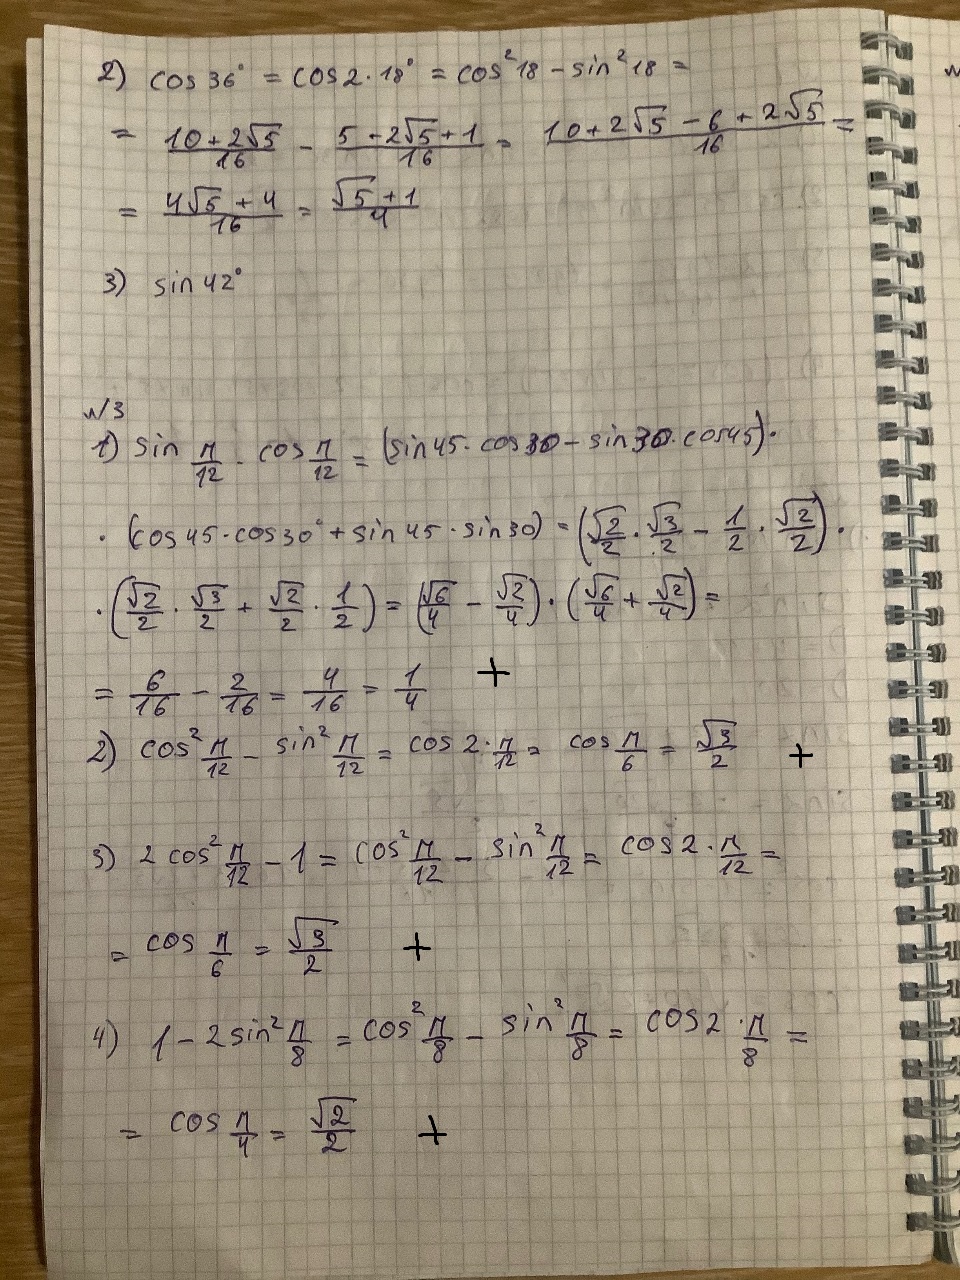 2) cos 36° = cos 2 · 18° = cos²18 - sin²18 =
= (10+2√5)/16 - (5-2√5+1)/16 = (10+2√5-6+2√5)/16 =
= (4√5+4)/16 = (√5+1)/4
3) sin 42°
N3
1) sin π/12 · cos π/12 = (sin45 · cos30 - sin30 · cos45) ·
· (cos45 · cos30° + sin45 · sin30) = (√2/2 · √3/2 - 1/2 · √2/2) ·
· (√2/2 · √3/2 + √2/2 · 1/2) = (√6/4 - √2/4) · (√6/4 + √2/4) =
= 6/16 - 2/16 = 4/16 = 1/4 +
2) cos² π/12 - sin² π/12 = cos 2 · π/12 = cos π/6 = √3/2 +
3) 2 cos² π/12 - 1 = cos² π/12 - sin² π/12 = cos 2 · π/12 =
= cos π/6 = √3/2 +
4) 1 - 2 sin² π/8 = cos² π/8 - sin² π/8 = cos 2 · π/8 =
= cos π/4 = √2/2 +